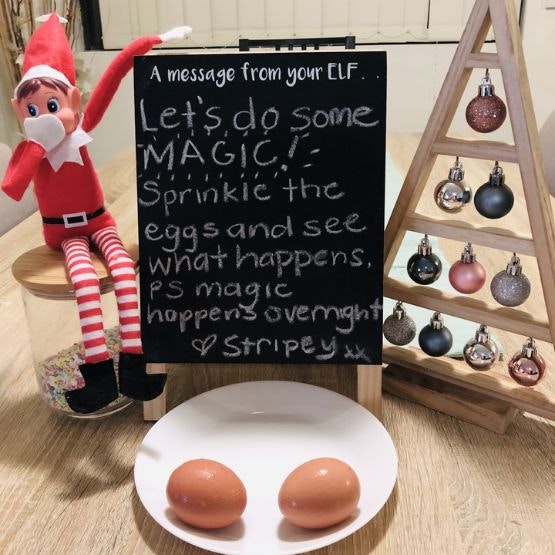 A message from your ELF. . .
Let's do some
MAGIC!
Sprinkle the
eggs and see
what happens,
PS magic
happens overnight
♡ Stripey xx